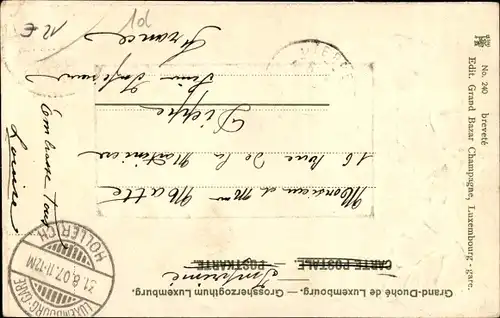 Grand-Duché de Luxembourg. — Grossherzogthum Luxemburg.
Imprimé
CARTE POSTALE
POSTKARTE
Monsieur et Mme Matte
16 rue de la Martinière
Dieppe
Seine Inférieure
France
Embrasse Tous
Louise
HOLLERICH
31.8.07.11-12M
LUXEMBOURG-GARE
DIEPPE
No. 240 breveté
Edit. Grand Bazar Champagne, Luxembourg-gare.
1d
12 €